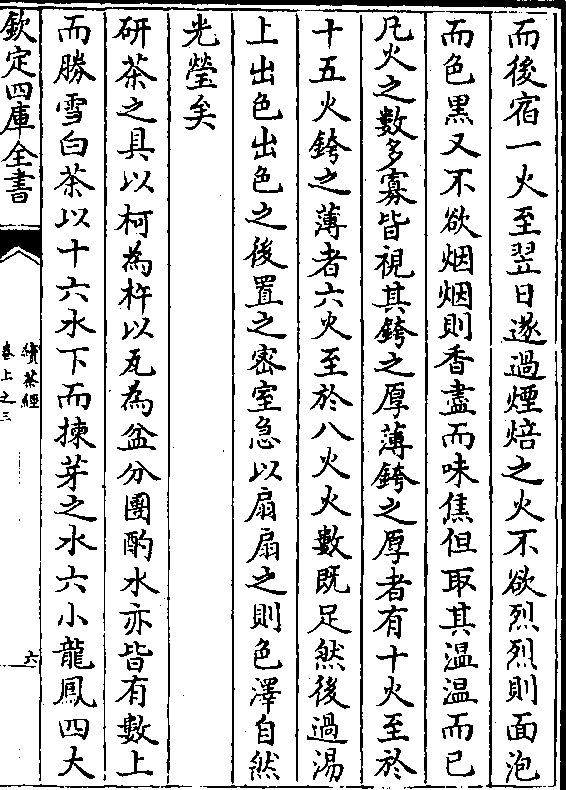 而後宿一火至翌日遂過煙焙之火不欲烈烈則面泡
而色黑又不欲烟烟則香盡而味焦但取其温温而已
凡火之數多寡皆視其銙之厚薄銙之厚者有十火至於
十五火銙之薄者六火至於八火火數既足然後過湯
上出色出色之後置之密室急以扇扇之則色澤自然
光瑩矣
研茶之具以柯為杵以瓦為盆分團酌水亦皆有數上
而勝雪白茶以十六水下而揀芽之水六小龍鳳四大
欽定四庫全書
續茶經
卷上之三
六